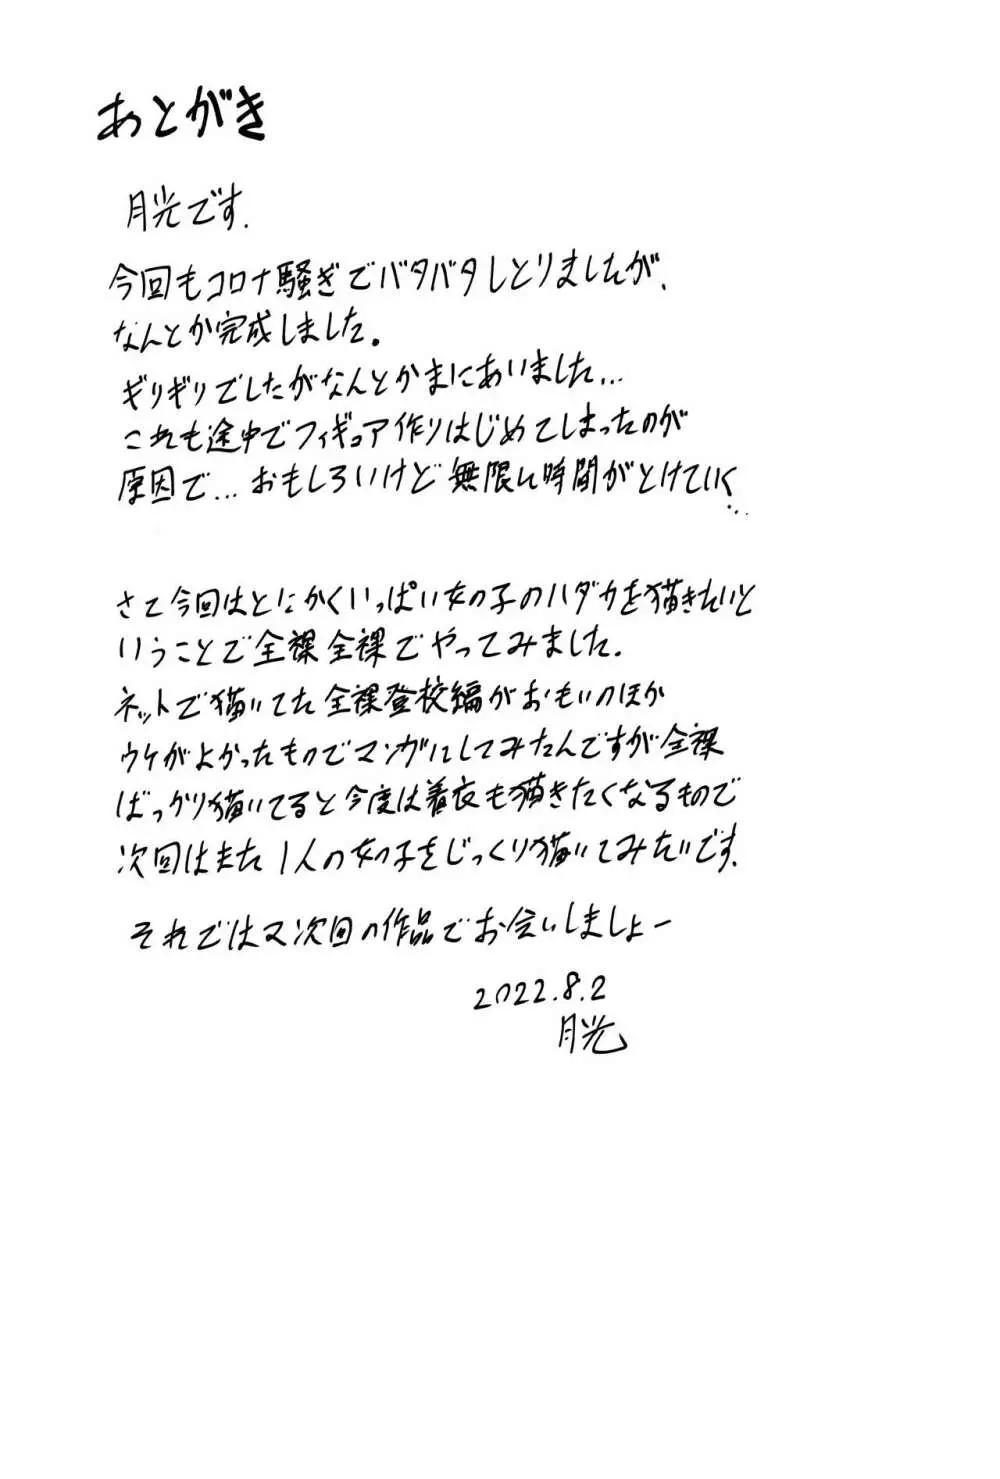 あとがき
月光です.
今回もコロナ騒ぎでバタバタしとりましたが、
なんとか完成しました。
ギリギリでしたがなんとかまにあいました…
これも途中でフィギュア作りはじめてしまったのが
原因で…おもしろいけど無限に時間がとけていく…
さて今回はとにかくいっぱい女の子のハダカを描きたいと
いうことで全裸全裸でやってみました.
ネットで描いてた全裸登校編がおもいのほか
ウケがよかったものでマンガにしてみたんですが全裸
ばっかり描いてると今度は着衣も描きたくなるもので
次回はまた1人の女の子をじっくり描いてみたいです.
それではマタ次回の作品でお会いしましょー
2022.8.2
月光